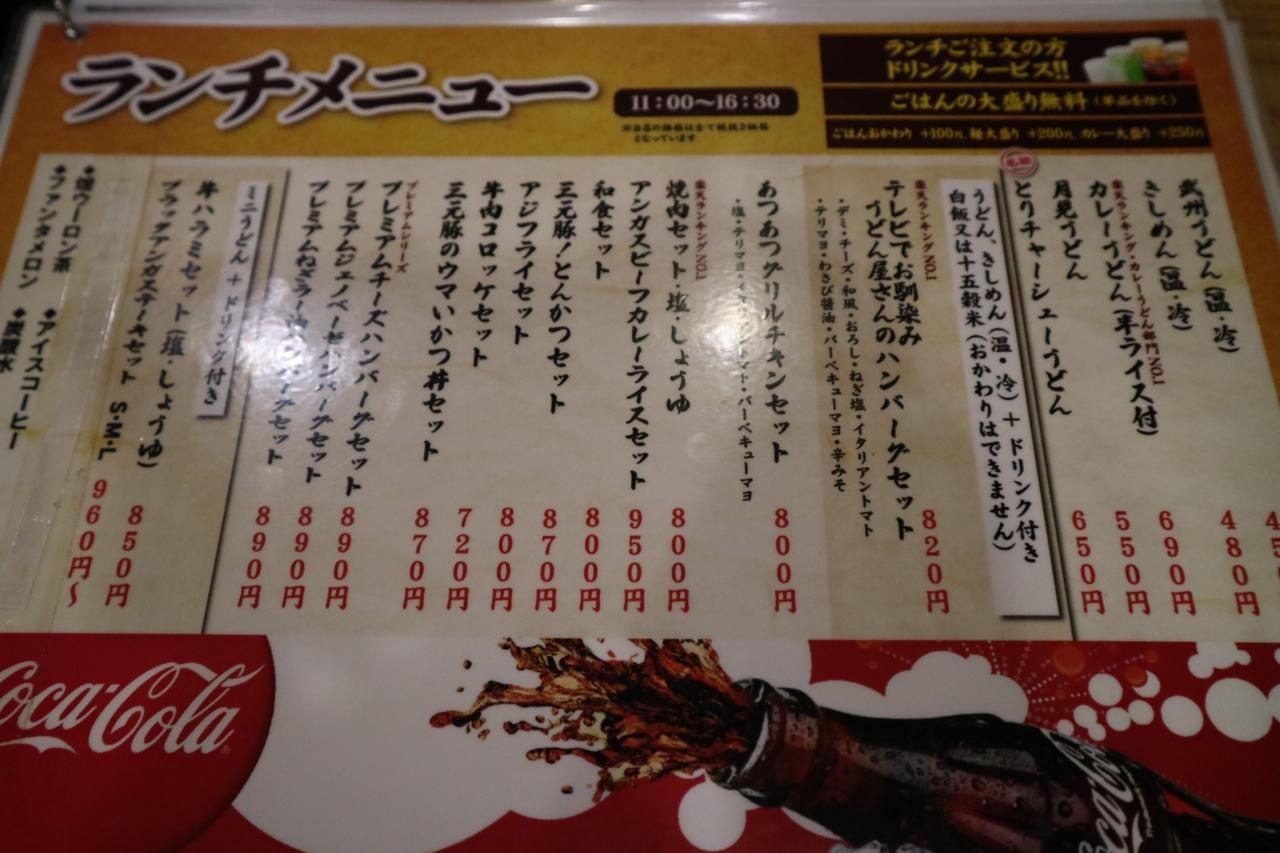 ランチメニュー
11:00〜16:30
※当店の価格は全て税抜き価格
となっています
ランチご注文の方
ドリンクサービス!!
ごはんの大盛り無料(単品を除く)
ごはんおかわり +100円、麺大盛り +200円、カレー大盛り +250円
武州うどん(温・冷)
480円
きしめん(温・冷)
楽天ランキング・カレーうどん部門NO.1
カレーうどん(半ライス付)
690円
月見うどん
550円
とりチャーシューうどん
650円
うどん、きしめん(温・冷)+ドリンク付き
白飯又は十五穀米(おかわりはできません)
楽天ランキングNO.1
テレビでお馴染み
うどん屋さんのハンバーグセット
820円
・デミ・チーズ・和風・おろし・ねぎ塩・イタリアントマト
・テリマヨ・わさび醤油・バーベキューマヨ・辛みそ
あつあつグリルチキンセット
800円
・塩・テリマヨ
トマト・バーベキューマヨ
楽天ランキングNO.1
焼肉セット・塩・しょうゆ
800円
アンガスビーフカレーライスセット
950円
和食セット
800円
三元豚!とんかつセット
870円
アジフライセット
800円
牛肉コロッケセット
720円
三元豚のウマいかつ丼セット
870円
プレミアムシリーズ
プレミアムチーズハンバーグセット
890円
プレミアムジェノベーゼハンバーグセット
890円
プレミアムねぎラー油ハンバーグセット
890円
ミニうどん+ドリンク付き
牛ハラミセット(塩・しょうゆ)
850円
ブラックアンガスステーキセット S・M・L
960円〜
◆煌ウーロン茶 ◆アイスコーヒー
◆ファンタメロン ◆炭酸水
Coca-Cola
Coca-Cola